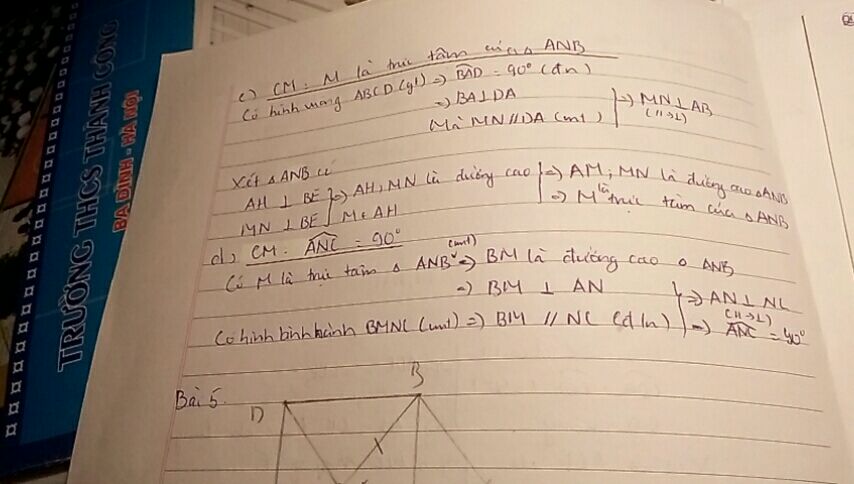 TRƯỜNG THCS THÀNH CÔNG
BA ĐÌNH - HÀ NỘI
c) CM: M là trực tâm của △ ANB
Có hình vuông ABCD (gt) => BAD = 90° (đn)
=> BA ⊥ DA
Mà MN // DA (cmt)
=> MN ⊥ AB
(// -> ⊥)
Xét △ ANB có
AH ⊥ BE
MN ⊥ BE
=> AH, MN là đường cao
M ∈ AH
=> AM, MN là đường cao △ ANB
=> M là trực tâm của △ ANB
d, CM: ANC = 90°
Có M là trực tâm △ ANB (cmt) => BM là đường cao △ ANB
=> BM ⊥ AN
Có hình bình hành BMNC (cmt) => BM // NC (đ ln)
=> AN ⊥ NC
(// -> ⊥)
=> ANC = 90°
Bài 5.
D
B